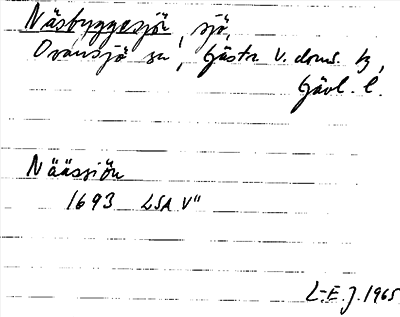 Näsbyggesjön, sjö,
Ovansjö sn, Gästr. V. doms. tg,
Gävl. l.
Näässiön
1693 LSA V"
L-E. J. 1965